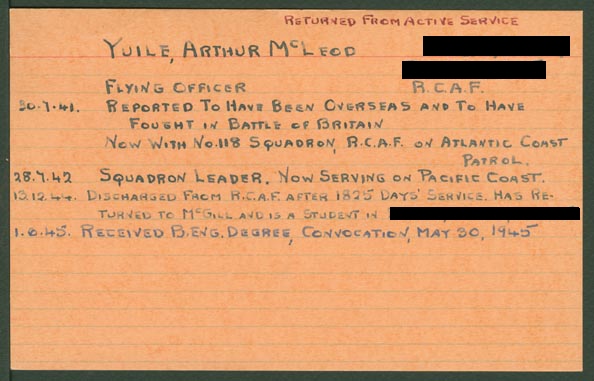 RETURNED FROM ACTIVE SERVICE
YUILE, ARTHUR MCLEOD
FLYING OFFICER R.C.A.F.
30.7.41. REPORTED TO HAVE BEEN OVERSEAS AND TO HAVE
FOUGHT IN BATTLE OF BRITAIN
NOW WITH NO.118 SQUADRON, R.C.A.F. ON ATLANTIC COAST
PATROL.
28.7.42 SQUADRON LEADER. NOW SERVING ON PACIFIC COAST.
13.12.44. DISCHARGED FROM R.C.A.F. AFTER 1825 DAYS' SERVICE. HAS RE-
TURNED TO MCGILL AND IS A STUDENT IN
1.6.45. RECEIVED B.ENG. DEGREE, CONVOCATION, MAY 30, 1945